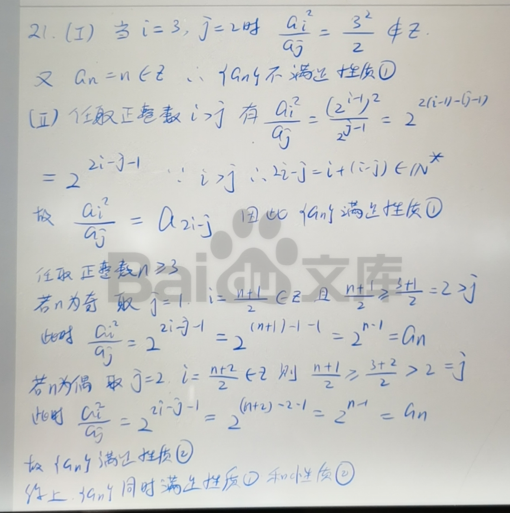 21. (I) 当 i=3, j=2时 ai²/aj = 3²/2 ∉ Z.
又 an=n∈Z ∴ {an}不满足性质①
(II) 任取正整数 i>j 有 ai²/aj = (2^(i-1))²/2^(j-1) = 2^(2(i-1)-(j-1))
= 2^(2i-j-1) ∵ i>j ∴ 2i-j=i+(i-j)∈IN*
故 ai²/aj = a2i-j 因此 {an}满足性质①
任取正整数n≥3
若n为奇 取 j=1 i=(n+1)/2 ∈Z 且 (n+1)/2 ≥ (3+1)/2 = 2>j
此时 ai²/aj = 2^(2i-j-1) = 2^((n+1)-1-1) = 2^(n-1) = an
若n为偶 取 j=2. i=(n+2)/2 ∈Z 则 (n+1)/2 ≥ (3+2)/2 > 2 = j
此时 ai²/aj = 2^(2i-j-1) = 2^((n+2)-2-1) = 2^(n-1) = an
故 {an}满足性质②
综上. {an}同时满足性质① 和性质②
Bai 文库